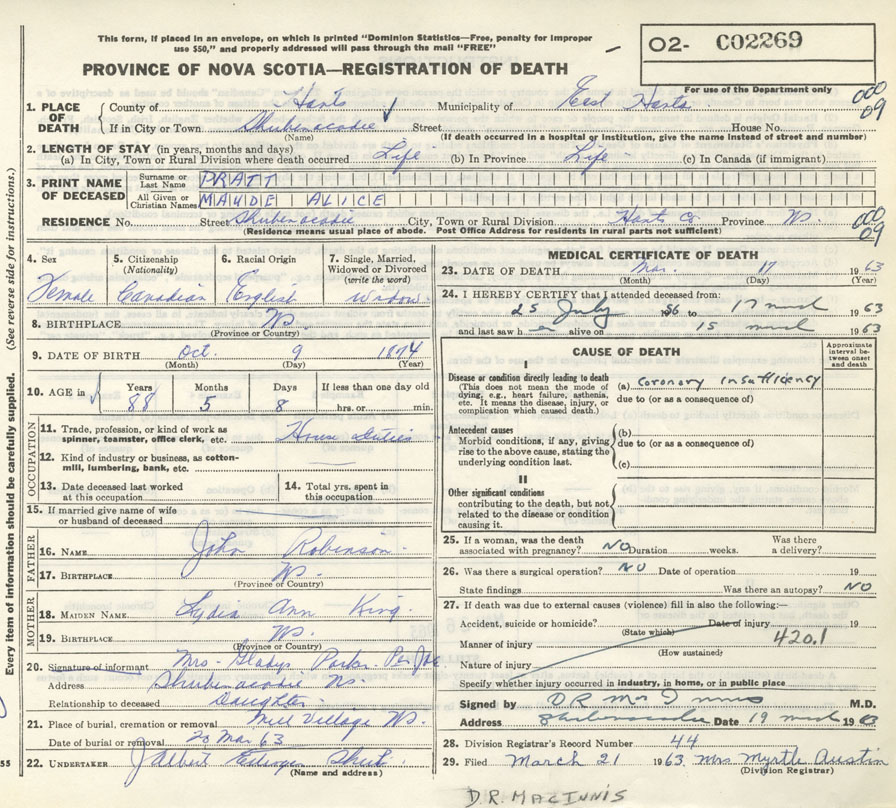 This form, if placed in an envelope, on which is printed "Dominion Statistics—Free, penalty for improper
use $50," and properly addressed will pass through the mail "FREE"
O2- C02269
PROVINCE OF NOVA SCOTIA—REGISTRATION OF DEATH
For use of the Department only
000
09
1. PLACE OF DEATH
County of Hants Municipality of East Hants
If in City or Town Shubenacadie Street House No.
(Name) (If death occurred in a hospital or institution, give the name instead of street and number)
2. LENGTH OF STAY (in years, months and days)
(a) In City, Town or Rural Division where death occurred Life (b) In Province Life (c) In Canada (if immigrant)
3. PRINT NAME OF DECEASED
Surname or Last Name PRATT
All Given or Christian Names MAUDE ALICE
RESIDENCE No. Street Shubenacadie City, Town or Rural Division Hants Co Province NS.
(Residence means usual place of abode. Post Office Address for residents in rural parts not sufficient)
000
09
(See reverse side for instructions.)
Every item of information should be carefully supplied.
4. Sex
Female
5. Citizenship (Nationality)
Canadian
6. Racial Origin
English
7. Single, Married, Widowed or Divorced (write the word)
widow
8. BIRTHPLACE NS.
(Province or Country)
9. DATE OF BIRTH Oct. 9 1874
(Month) (Day) (Year)
10. AGE in Years Months Days If less than one day old
88 5 8 hrs. or min.
OCCUPATION
11. Trade, profession, or kind of work as spinner, teamster, office clerk, etc. House duties
12. Kind of industry or business, as cotton-mill, lumbering, bank, etc.
13. Date deceased last worked at this occupation
14. Total yrs. spent in this occupation
15. If married give name of wife or husband of deceased
FATHER
16. NAME John Robinson
17. BIRTHPLACE NS.
(Province or Country)
MOTHER
18. MAIDEN NAME Lydia Ann King
19. BIRTHPLACE NS.
(Province or Country)
20. Signature of informant Mrs. Gladys Parker
Address Shubenacadie NS.
Relationship to deceased Daughter
21. Place of burial, cremation or removal Mill Village NS.
Date of burial or removal 20 Mar 63
22. UNDERTAKER
(Name and address)
55
MEDICAL CERTIFICATE OF DEATH
23. DATE OF DEATH Mar. 17 1963
(Month) (Day) (Year)
24. I HEREBY CERTIFY that I attended deceased from:
25 July to 17 march 1963
and last saw her alive on 15 march 1963
CAUSE OF DEATH
Approximate interval between onset and death
I
Disease or condition directly leading to death
(This does not mean the mode of dying, e.g., heart failure, asthenia, etc. It means the disease, injury, or complication which caused death.)
(a) coronary insufficiency
due to (or as a consequence of)
Antecedent causes
Morbid conditions, if any, giving rise to the above cause, stating the underlying condition last.
(b)
due to (or as a consequence of)
(c)
II
Other significant conditions
contributing to the death, but not related to the disease or condition causing it.
25. If a woman, was the death associated with pregnancy? NO Duration weeks. Was there a delivery?
26. Was there a surgical operation? NO Date of operation 19
State findings Was there an autopsy? NO
27. If death was due to external causes (violence) fill in also the following:
Accident, suicide or homicide? Date of injury 19
(State which)
Manner of injury 420.1
(How sustained)
Nature of injury
Specify whether injury occurred in industry, in home, or in public place
Signed by D R MacInnis M.D.
Address Shubenacadie Date 19 march 1963
28. Division Registrar's Record Number 44
29. Filed March 21 1963 Mrs Myrtle Austin
(Division Registrar)
D.R. MACINNIS